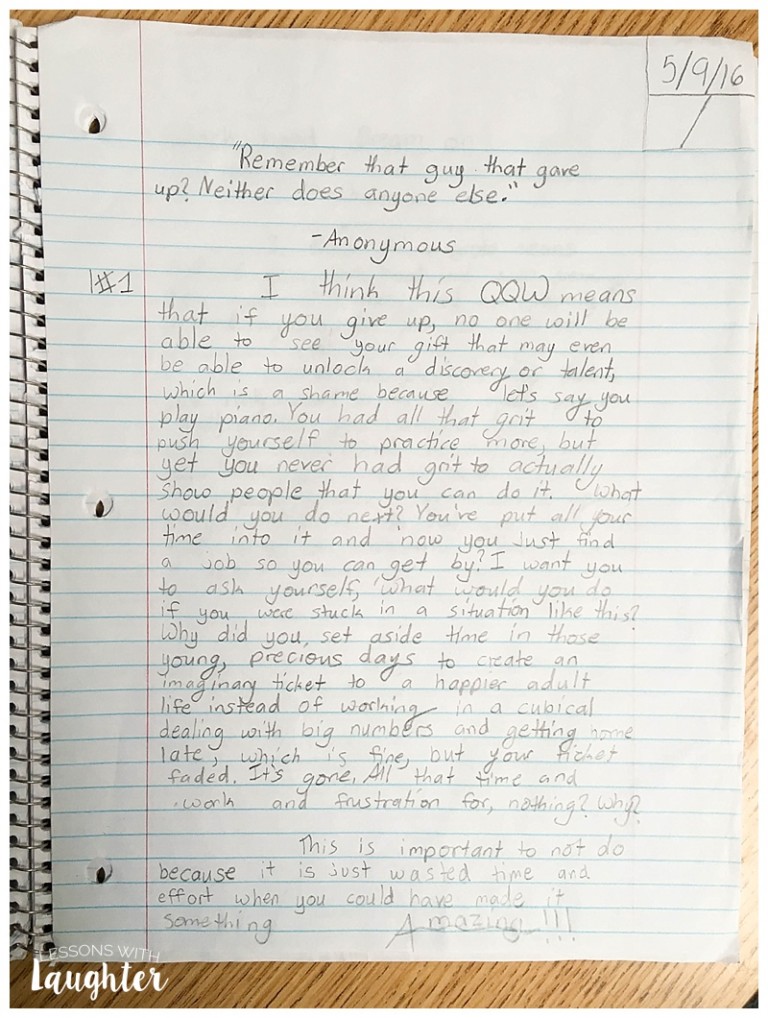 5/9/16
/
"Remember that guy that gave
up? Neither does anyone else."
-Anonymous
#1 I think this QQW means
that if you give up, no one will be
able to see your gift that may even
be able to unlock a discovery or talent,
which is a shame because let's say you
play piano. You had all that grit to
push yourself to practice more, but
yet you never had grit to actually
show people that you can do it. What
would you do next? You've put all your
time into it and now you just find
a job so you can get by? I want you
to ask yourself, 'what would you do
if you were stuck in a situation like this?
Why did you set aside time in those
young, precious days to create an
imaginary ticket to a happier adult
life instead of working in a cubical
dealing with big numbers and getting home
late, which is fine, but your ticket
faded. It's gone. All that time and
work and frustration for, nothing? Why?
This is important to not do
because it is just wasted time and
effort when you could have made it
something Amazing!!!
LESSONS WITH
Laughter